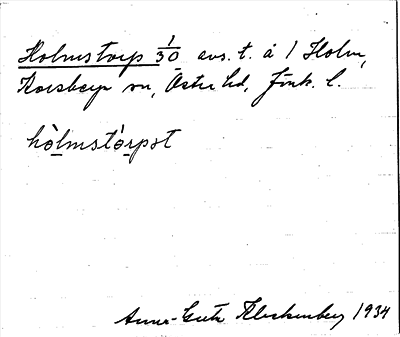 Holmstorp 1/30 avs. t. å 1 Holm,
Korsberga sn, Östra hd, Jönk. l.
hòlmstórpət
Anna-Greta Kleckenberg 1934